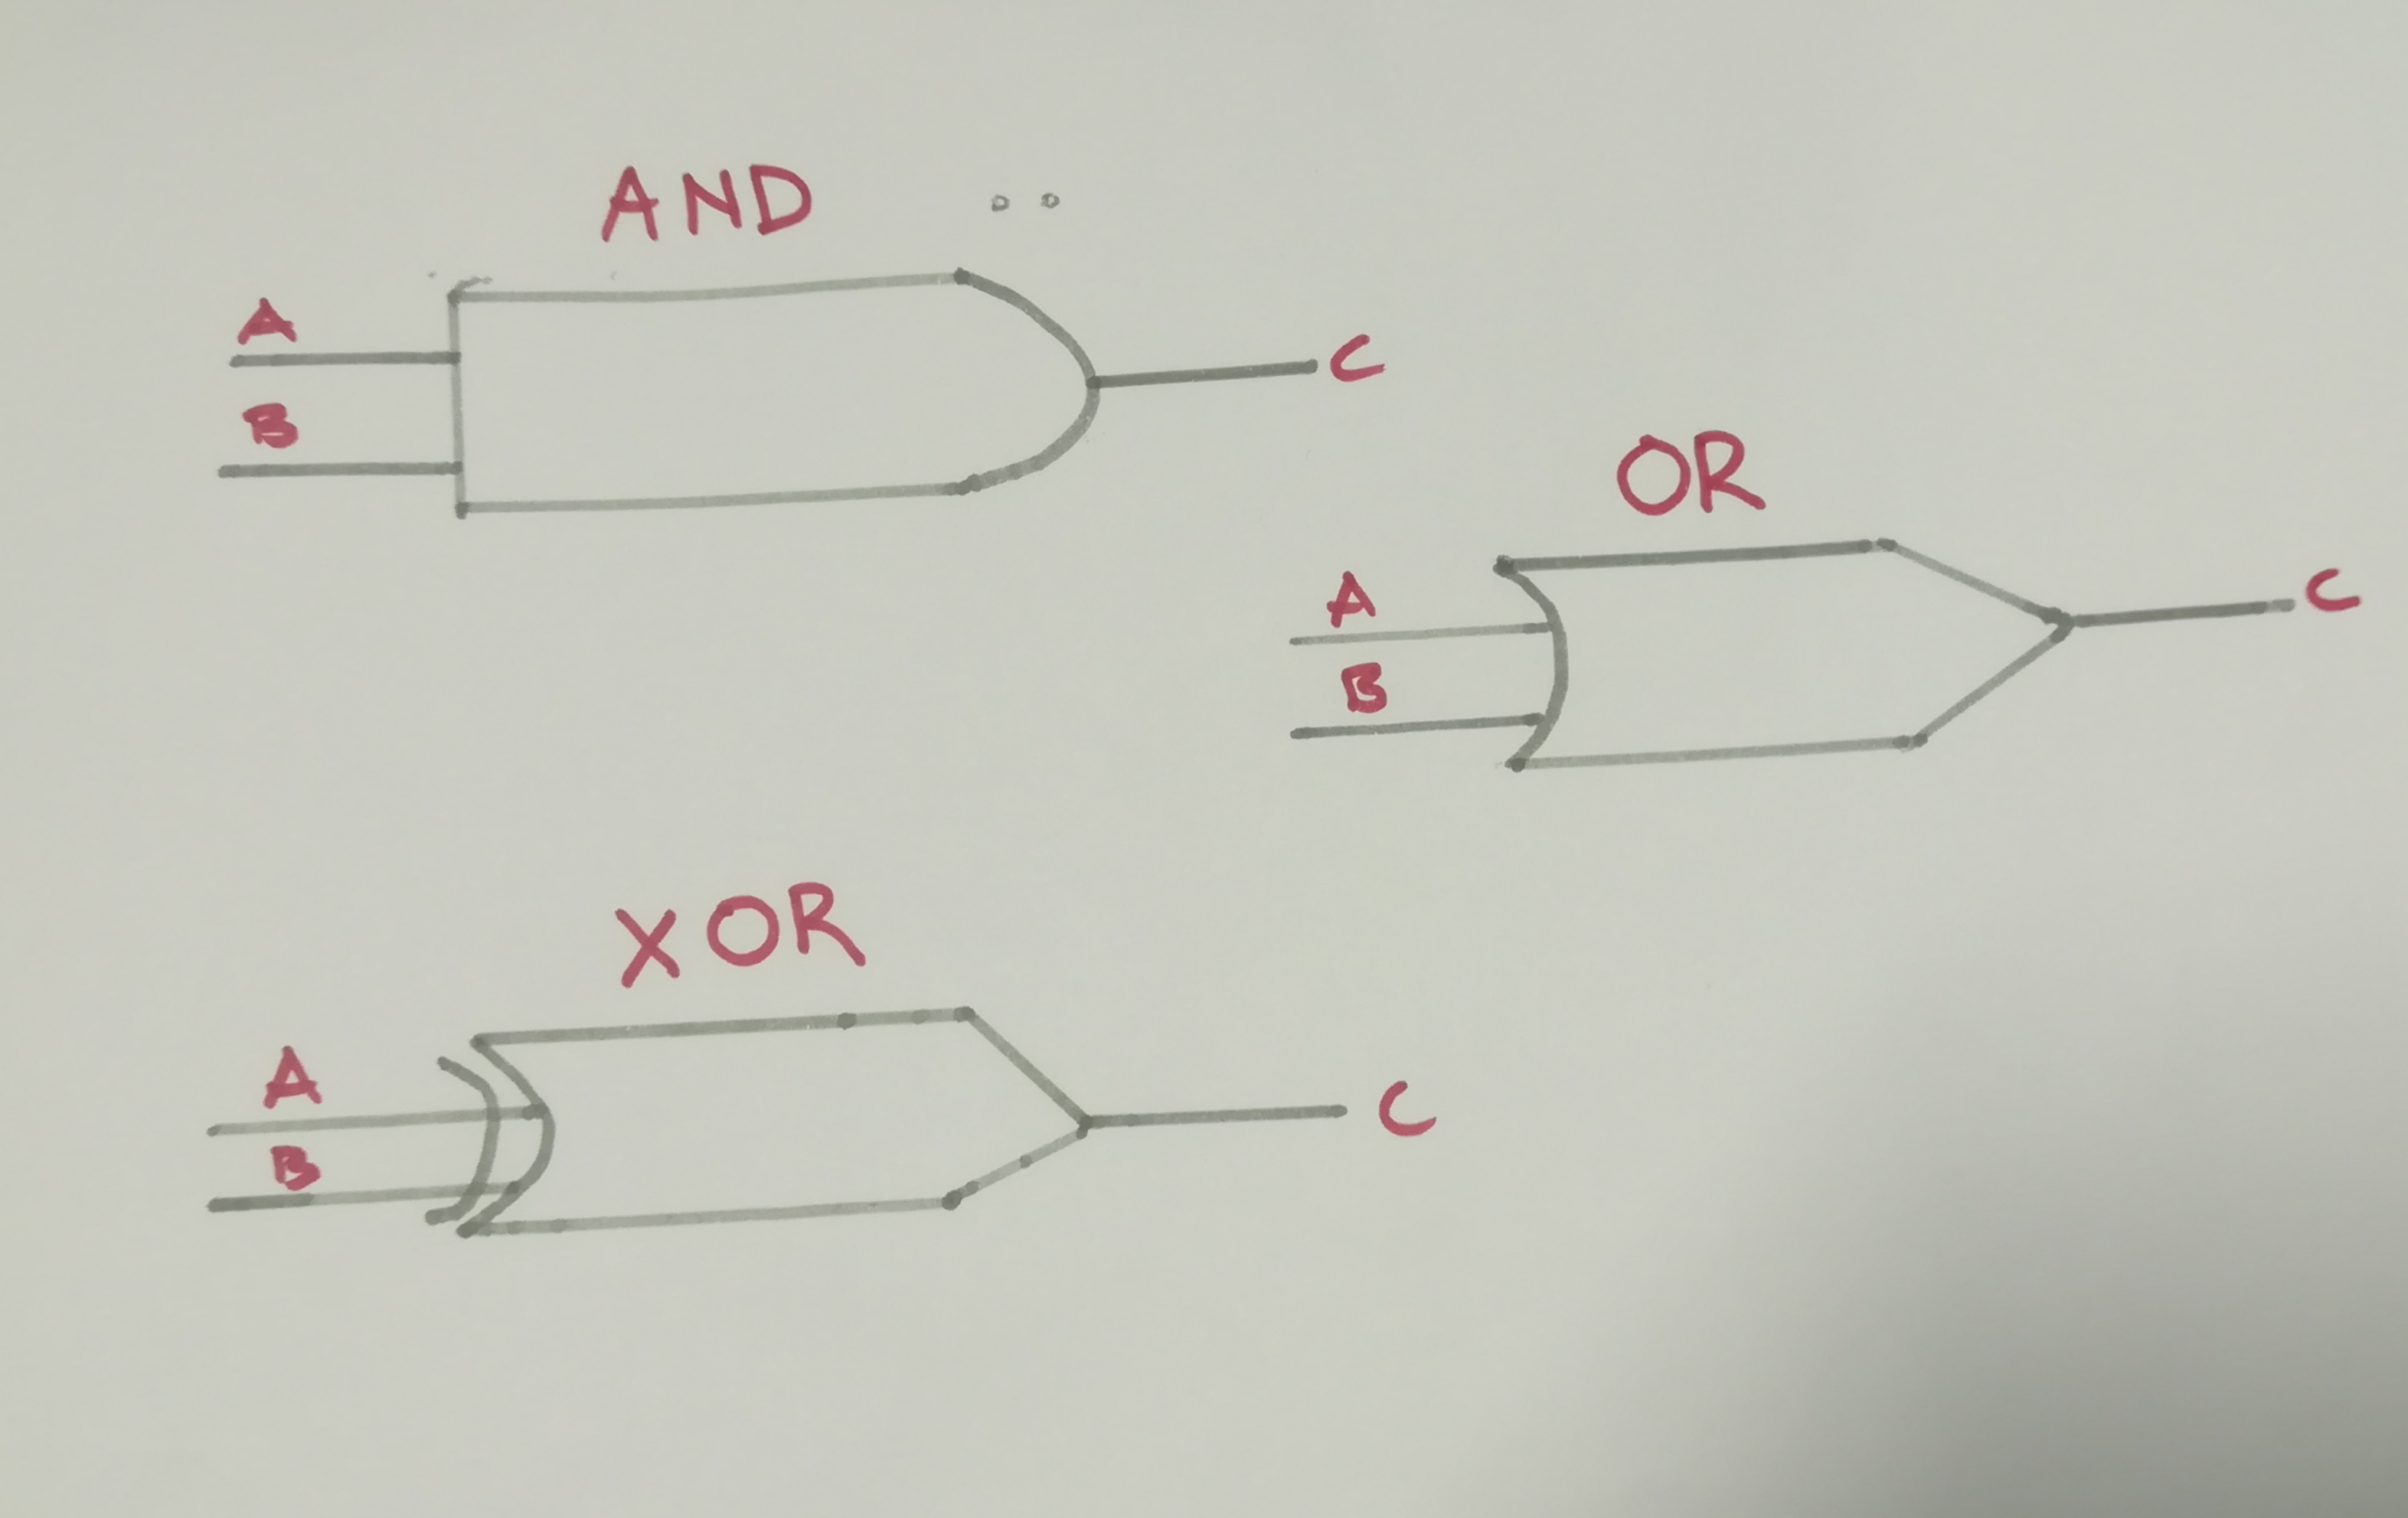 AND
A
B
C
OR
A
B
C
XOR
A
B
C